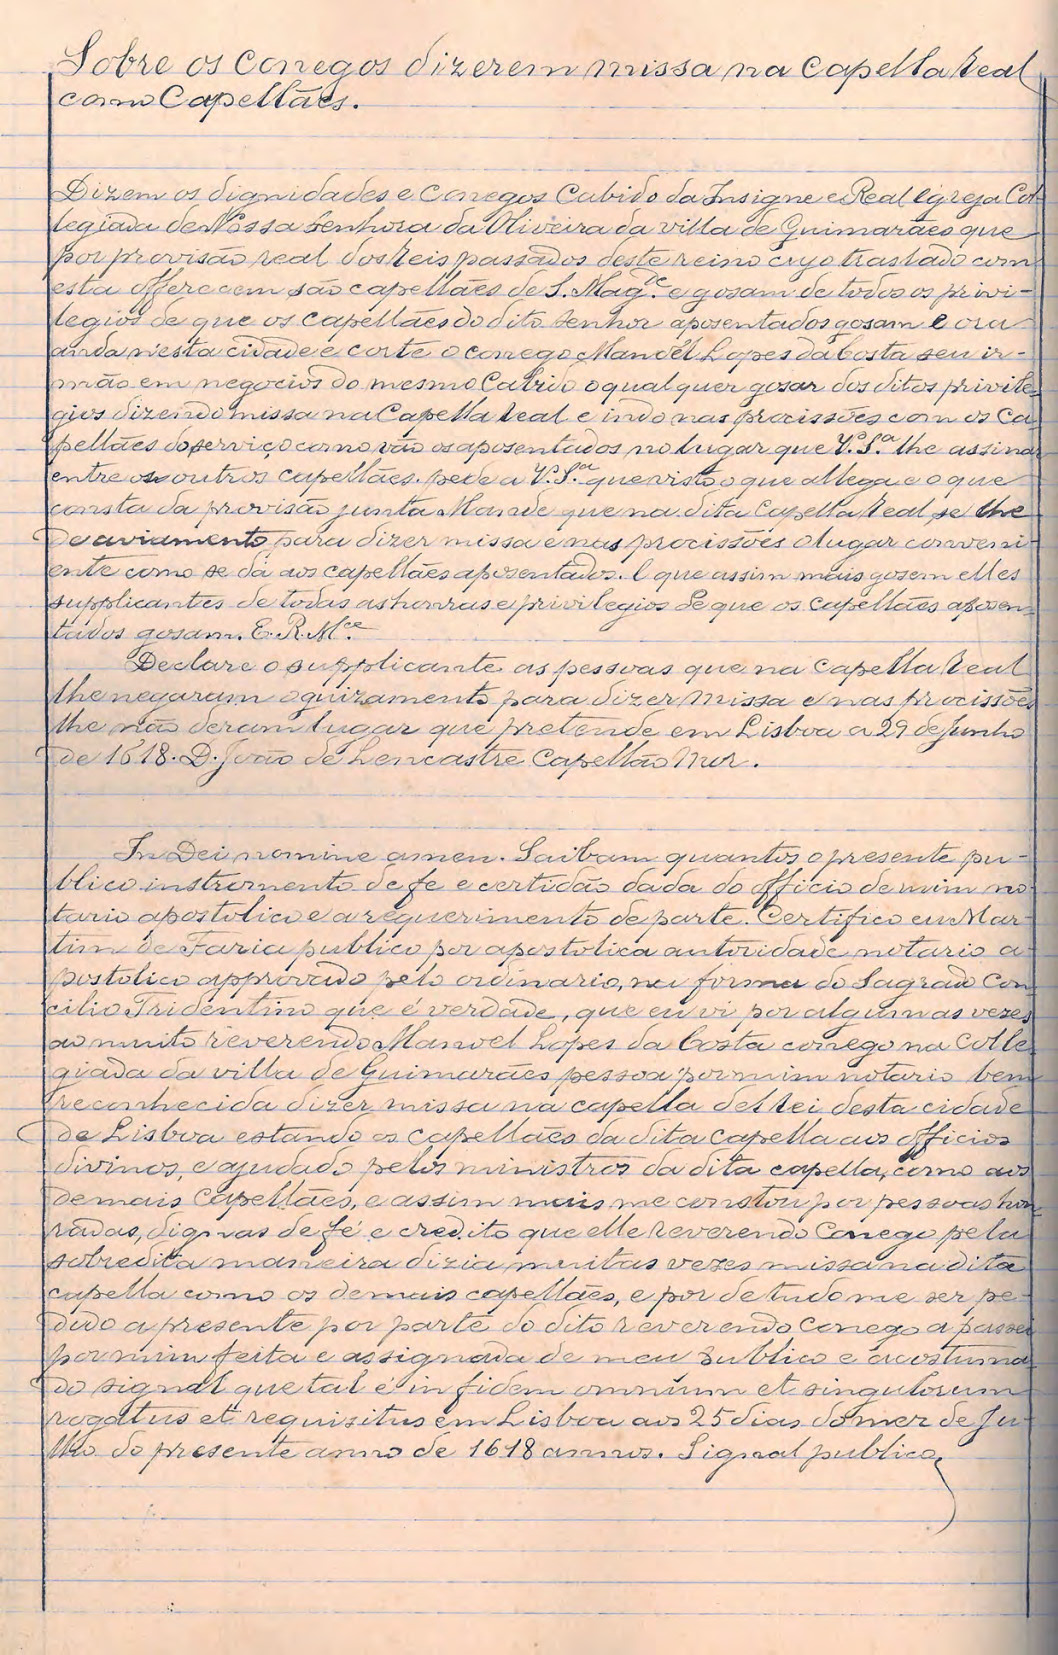 Sobre os Conegos dizerem missa na Capella Real
como Capellães.
Dizem os dignidades e Conegos Cabido da Insigne e Real Egreja Col-
legiada de Nossa Senhora da Oliveira da villa de Guimarães que
por provisão real dos Reis passados deste reino cujo traslado com
esta offerecem são capellães de S. Mag.de e gosam de todos os privi-
legios de que os capellães do dito Senhor aposentados gosam E ora
anda n'esta cidade e corte o conego Manoel Lopes da Costa seu ir-
mão em negocios do mesmo Cabido o qual quer gosar dos ditos privile-
gios dizendo missa na Capella Real e indo nas procissões com os Ca-
pellães do serviço como vão os aposentados no lugar que V.S.a lhe assinar
entre os outros capellães. pede a V.S.a que visto o que allega e o que
consta da provisão junta Mande que na dita Capella Real se lhe
de aviamento para dizer missa e nas procissões o lugar conveni-
ente como se dá aos capellães aposentados. E que assim mais gosem elles
supplicantes de todas as honras e privilegios de que os capellães aposen-
tados gosam. E.R.M.ce
Declare o supplicante as pessoas que na Capella Real
lhe negaram o guizamento para dizer missa e nas procissões
lhe não deram lugar que pretende em Lisboa a 29 de Junho
de 1618. D. João de Lencastre Capellão Mor.
In Dei nomine amen. Saibam quantos o presente pu-
blico instrumento de fe e certidão dada do officio de mim no-
tario apostolico e a requerimento de parte. Certifico eu Mar-
tim de Faria publico por apostolica autoridade notario a-
postolico approvado pelo ordinario, na forma do Sagrado Con-
cilio Tridentino que é verdade, que eu vi por algumas vezes
ao muito reverendo Manoel Lopes da Costa conego na Colle-
giada da villa de Guimarães pessoa por mim notario bem
reconhecida dizer missa na capella del Rei desta cidade
de Lisboa estando os capellães da dita Capella aos officios
divinos, e ajudado pelos ministros da dita capella, como aos
demais Capellães, e assim mais me constou por pessoas hon-
radas, dignas de fé e credito que elle Reverendo Conego pela
sobredita maneira dizia muitas vezes missa na dita
capella como os demais capellães, e por de tudo me ser pe-
dido a presente por parte do dito reverendo Conego a passei
por mim feita e assignada de meu publico e acostuma-
do signal que tal é in fidem omnium et singulorum
rogatus et requisitus em Lisboa aos 25 dias do mez de Ju-
lho do presente anno de 1618 annos. Signal publico,